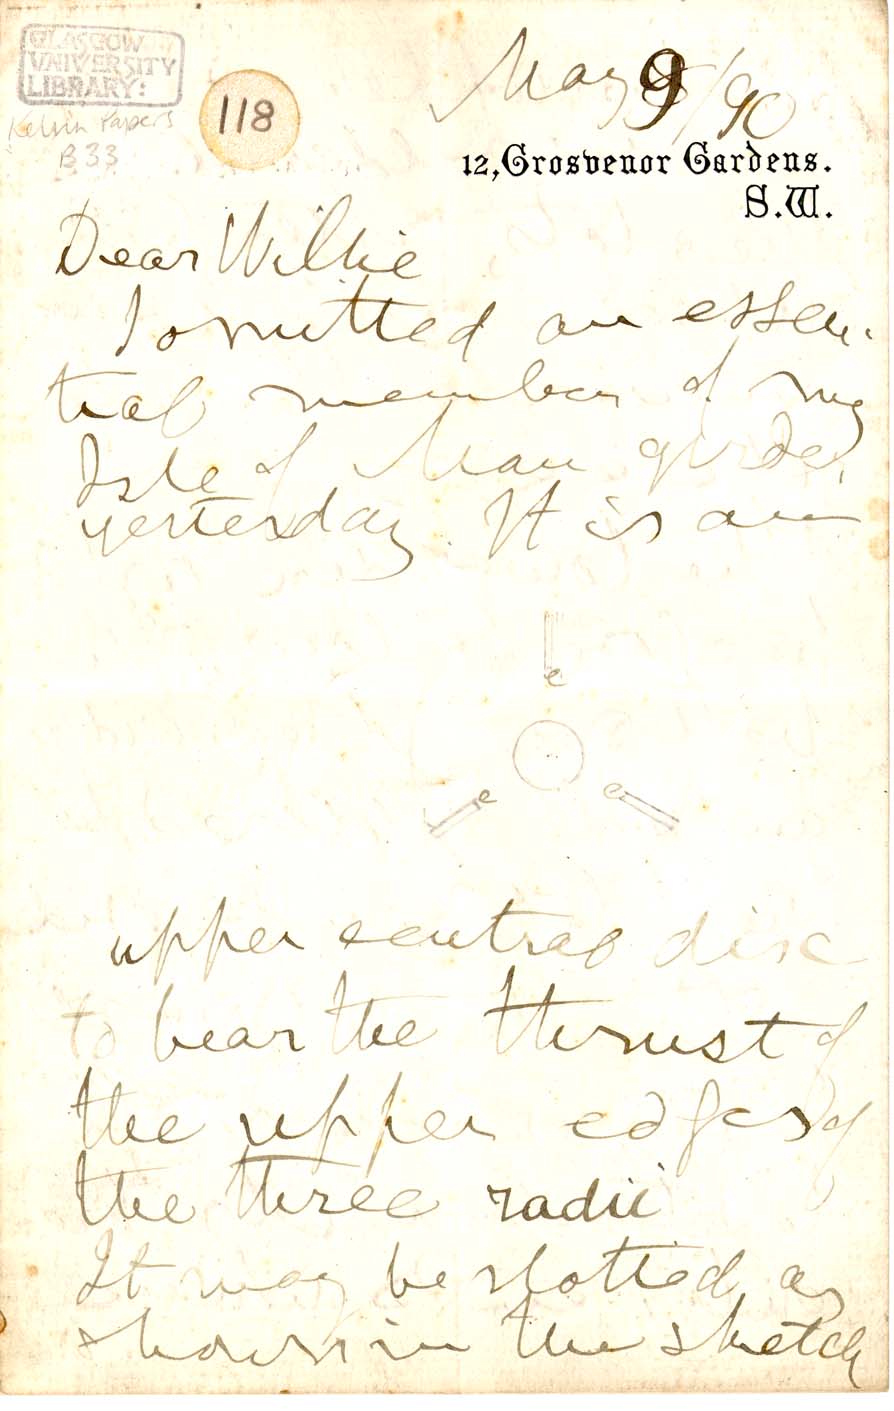 GLASGOW
UNIVERSITY
LIBRARY:
Kelvin Papers
B33
118
May 9/90
12, Grosvenor Gardens.
S.W.
Dear Willie
I omitted an essen-
tial member of my
Isle of Man girder
yesterday. It is an
e
e e
upper central disc
to bear the thrust of
the upper edges of
the three radii
It may be slotted as
shown in the sketch